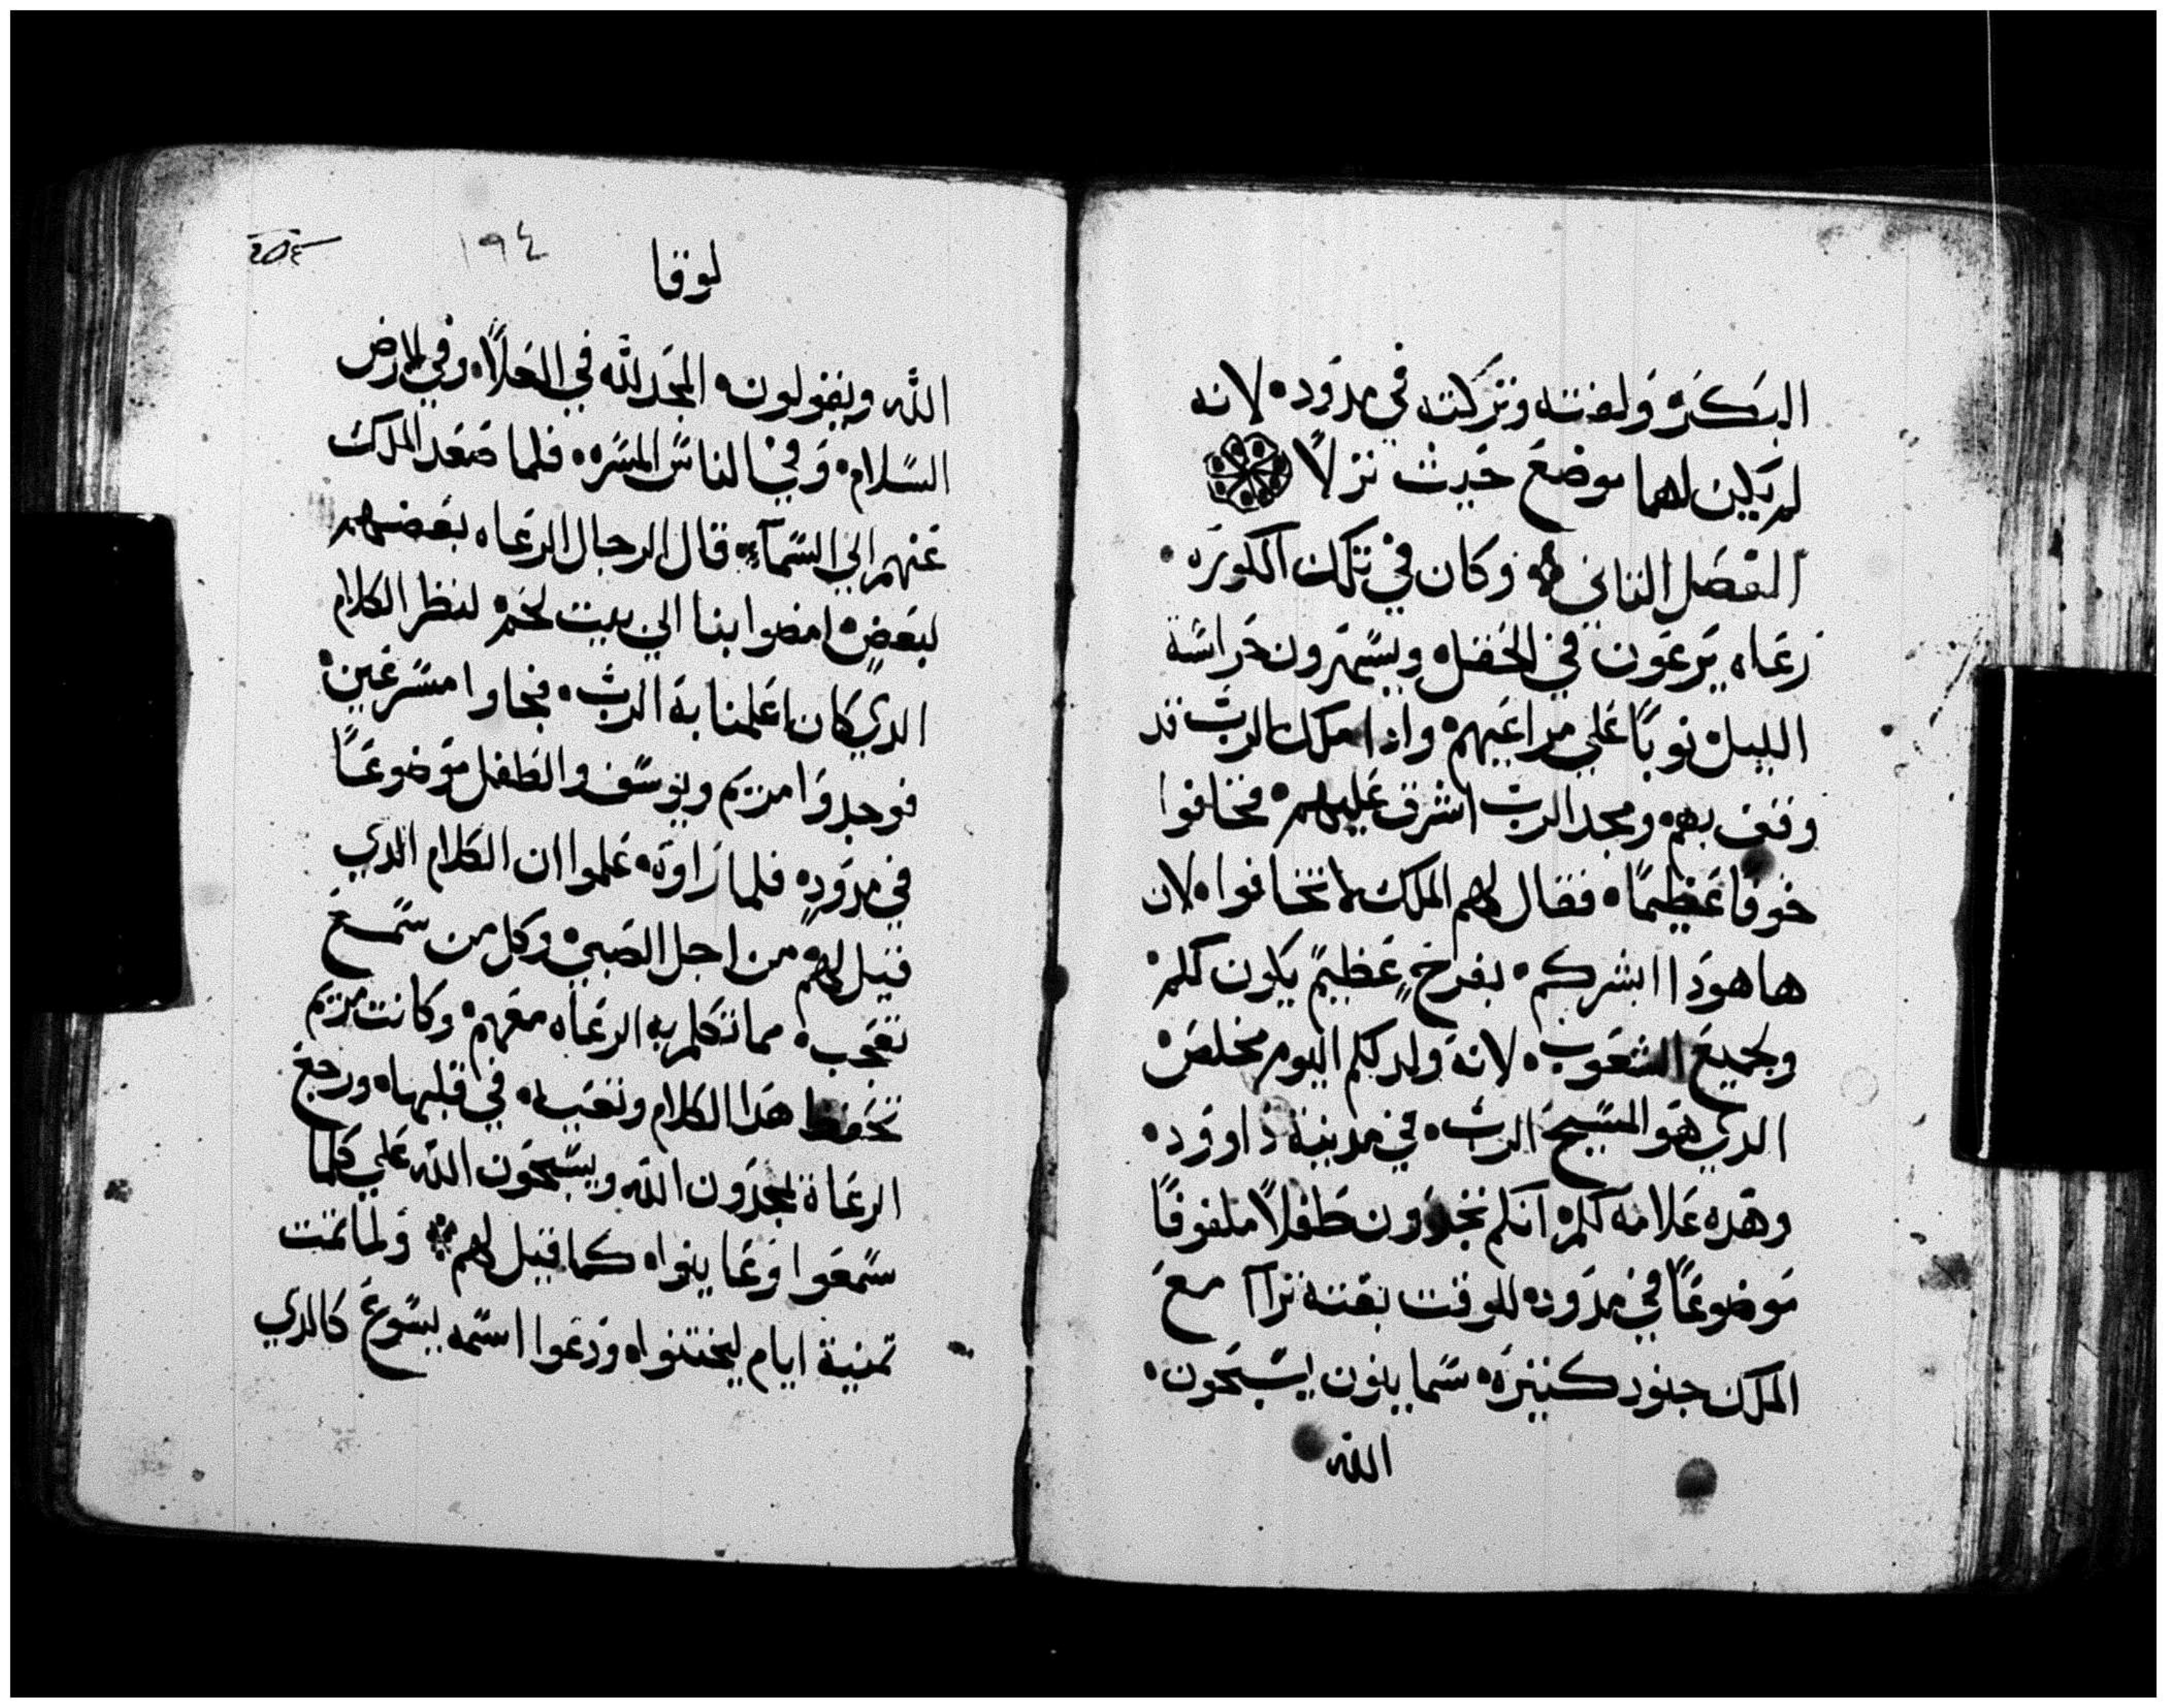 البكر ولفته وتركته في مدود. لانه
لم يكن لهما موضع حيث نزلا
الفصل الثاني وكان في تلك الكوره
رعاه يرعون في الحقل ويسهرون حراسة
الليل نوبا علي مراعيهم واذا ملاك الرب قد
وقف بهم ومجد الرب اشرق عليهم فخافوا
خوفا عظيما. فقال لهم الملاك لا تخافوا. لان
هاهودا ابشركم. بفرح عظيم يكون لكم
ولجميع الشعوب. لانه ولد لكم اليوم مخلص
الدي هو المسيح الرب. في مدينة داوود.
وهده علامه لكم انكم تجدون طفلا ملفوفا
موضوعا في مدود. للوقت بغتة تراا مع
الملاك جنود كثيرة. سماييون يسبحون.
الله
لوقا
١٩٤
الله ويقولون. المجد لله في العلا. وفي الارض
السلام. وفي الناس المسره. فلما صعد الملاك
عنهم الي السمآء. قال الرجال الرعاه بعضهم
لبعض. امضوا بنا الي بيت لحم لننظر الكلام
الدي كان اعلمنا به الرب. فجاوا مسرعين
فوجدوا مريم ويوسف والطفل موضوعا
في مدود. فلما راوه. علموا ان الكلام الدي
قيل لهم من اجل الصبي وكل من سمع
تعجب. مما تكلم به الرعاه معهم. وكانت مريم
تحفظ هدا الكلام وتعيه. في قلبها. ورجع
الرعاة يمجدون الله ويسبحون الله علي كلما
سمعوا وعاينوا. كما قيل لهم ولما تمت
تمنية ايام ليختنوه ودعوا اسمه يسوع كالدي